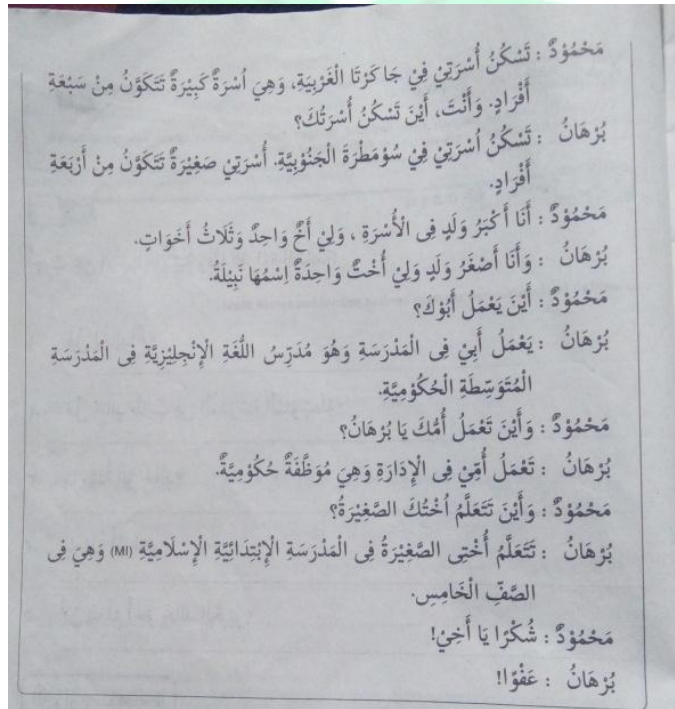 مَحْمُوْدٌ : تَسْكُنُ أُسْرَتِيْ فِيْ جَاكَرْتَا الْغَرْبِيَةِ، وَهِيَ اُسْرَةٌ كَبِيْرَةٌ تَتَكَوَّنُ مِنْ سَبْعَةِ
أَفْرَادٍ. وَأَنْتَ، أَيْنَ تَسْكُنُ أُسْرَتُكَ؟
بُرْهَانُ : تَسْكُنُ اُسْرَتِيْ فِيْ سُوْمَطْرَةَ الْجَنُوْبِيَّةِ. أُسْرَتِيْ صَغِيْرَةٌ تَتَكَوَّنُ مِنْ أَرْبَعَةِ
أَفْرَادٍ.
مَحْمُوْدٌ : أَنَا أَكْبَرُ وَلَدٍ فِى الْأُسْرَةِ ، وَلِيْ أَخٌ وَاحِدٌ وَثَلَاثُ أَخَوَاتٍ.
بُرْهَانُ : وَأَنَا أَصْغَرُ وَلَدٍ وَلِيْ أُخْتٌ وَاحِدَةٌ اِسْمُهَا نَبِيْلَةُ.
مَحْمُوْدٌ : أَيْنَ يَعْمَلُ أَبُوْكَ؟
بُرْهَانُ : يَعْمَلُ أَبِيْ فِى الْمَدْرَسَةِ وَهُوَ مُدَرِّسُ اللُّغَةِ الْإِنْجِلِيْزِيَّةِ فِى الْمَدْرَسَةِ
الْمُتَوَسِّطَةِ الْحُكُوْمِيَّةِ.
مَحْمُوْدٌ : وَأَيْنَ تَعْمَلُ أُمُّكَ يَا بُرْهَانُ؟
بُرْهَانُ : تَعْمَلُ أُمِّيْ فِى الْإِدَارَةِ وَهِيَ مُوَظَّفَةٌ حُكُوْمِيَّةٌ.
مَحْمُوْدٌ : وَأَيْنَ تَتَعَلَّمُ اُخْتُكَ الصَّغِيْرَةُ؟
بُرْهَانُ : تَتَعَلَّمُ أُخْتِى الصَّغِيْرَةُ فِى الْمَدْرَسَةِ الْإِبْتِدَائِيَّةِ الْإِسْلَامِيَّةِ (MI) وَهِيَ فِى
الصَّفِّ الْخَامِسِ.
مَحْمُوْدٌ : شُكْرًا يَا أَخِيْ!
بُرْهَانُ : عَفْوًا!